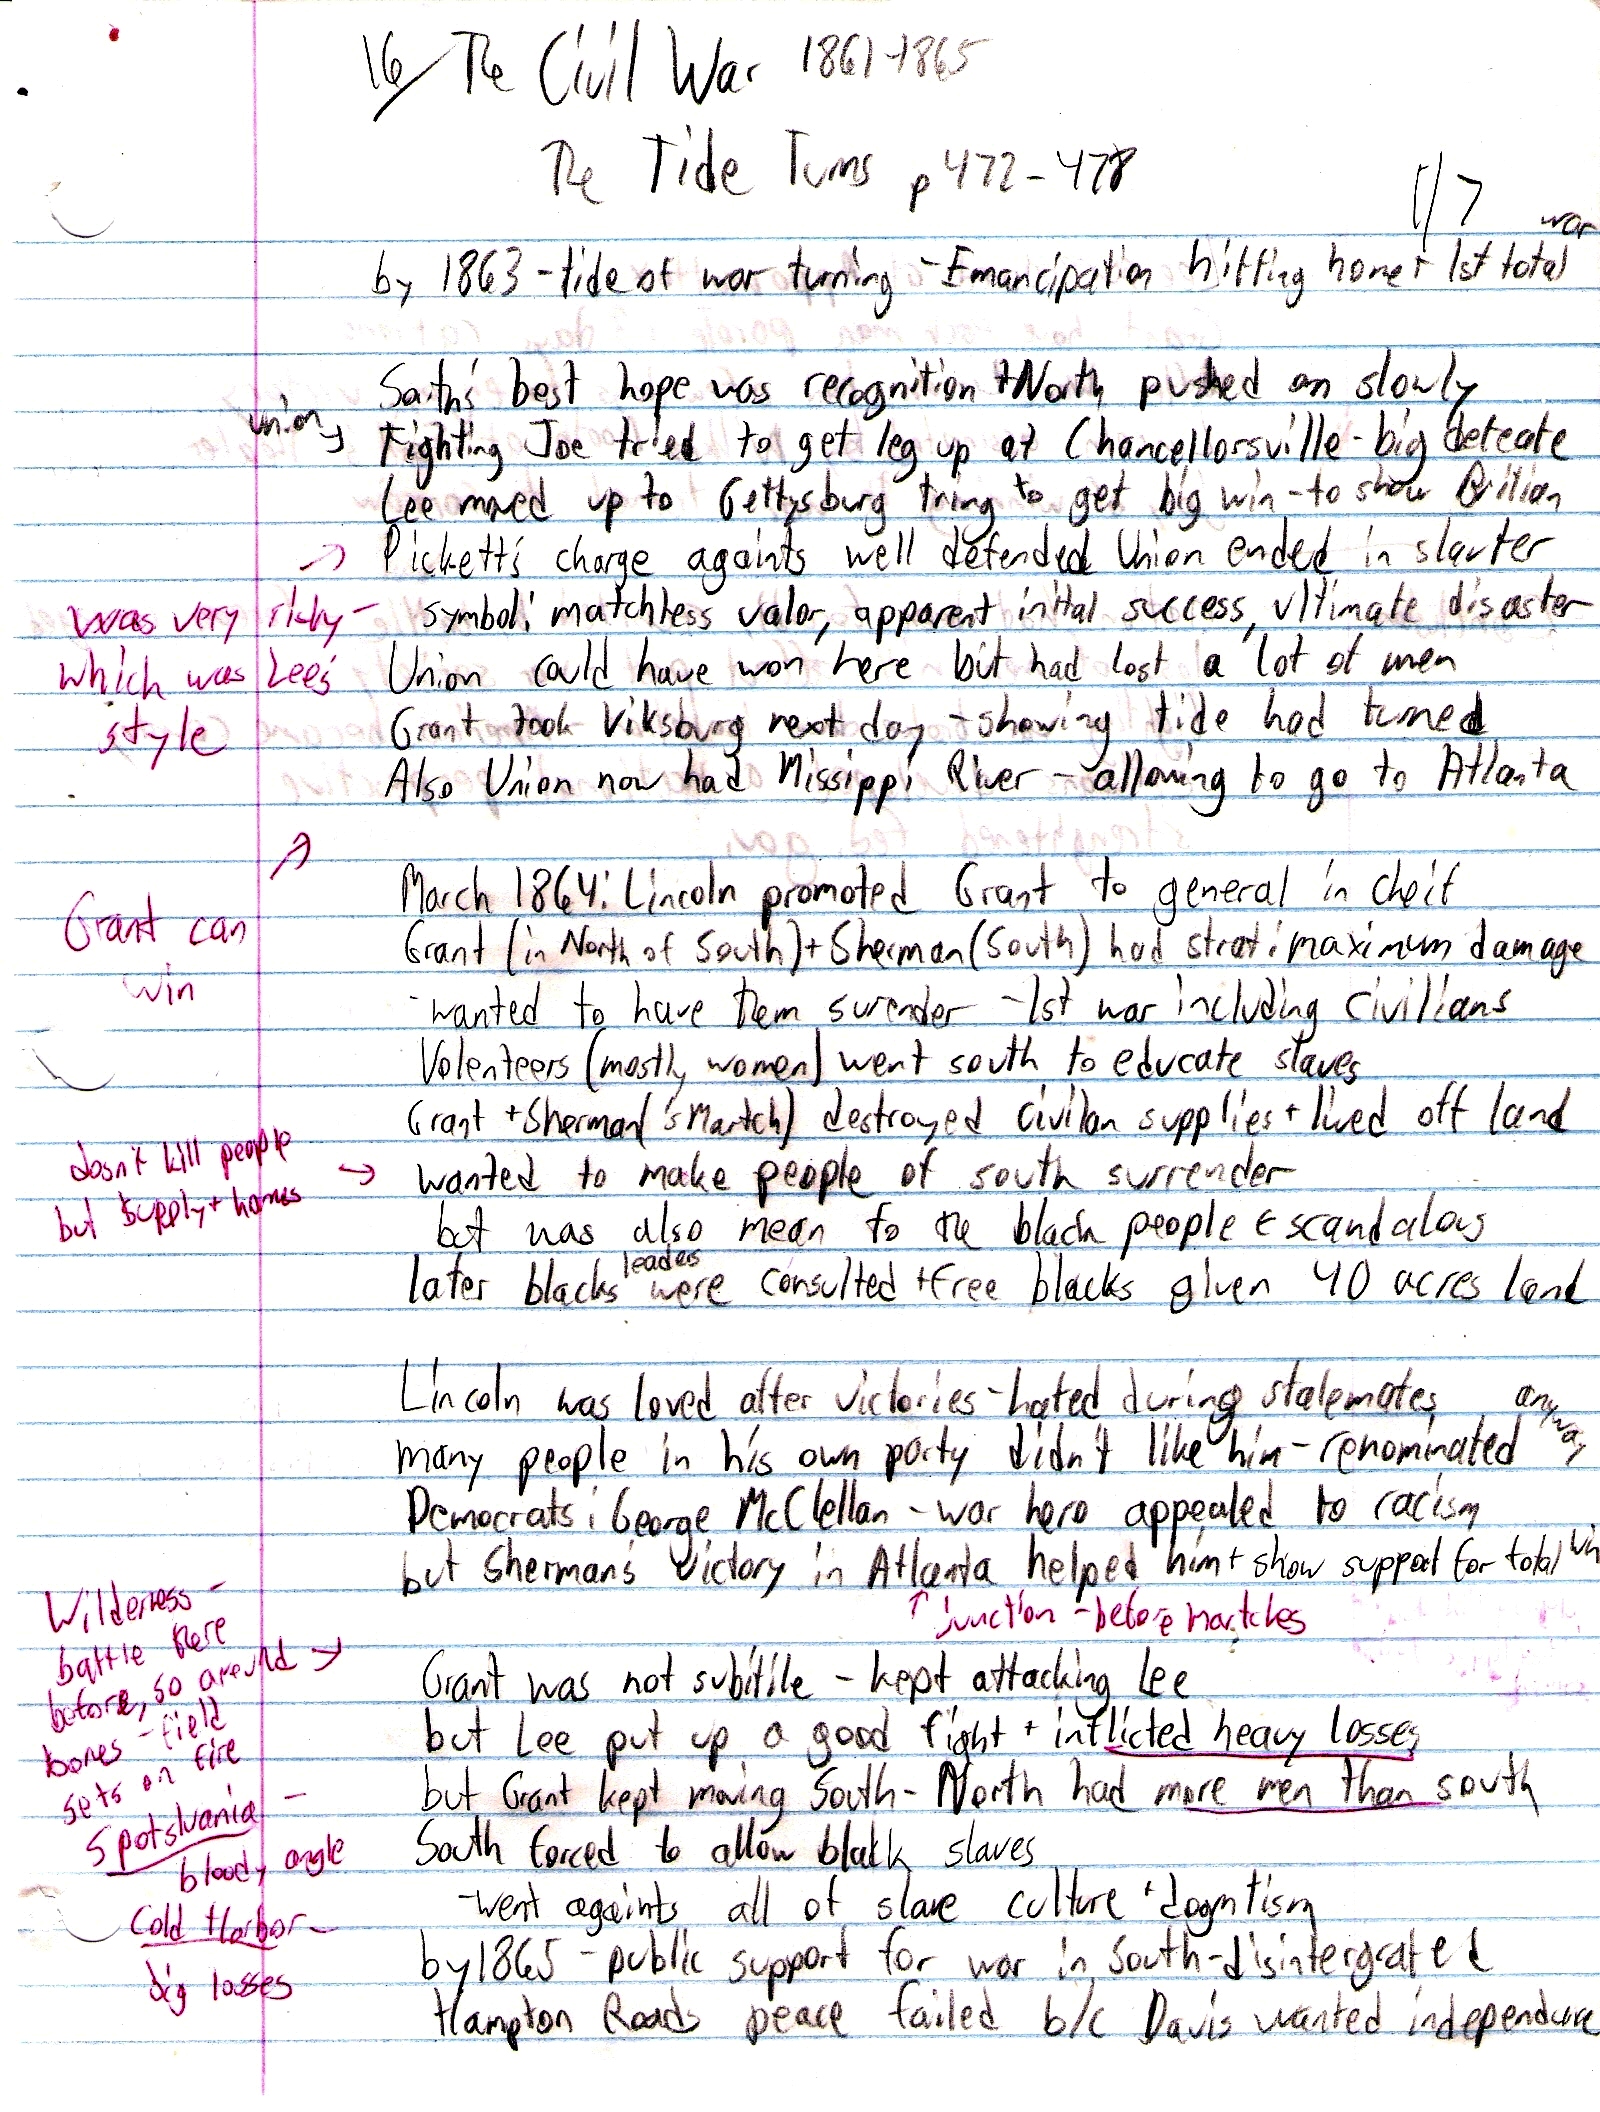 16/ The Civil War 1861-1865
The Tide Turns p 472-478
1/7
war
by 1863 - tide of war turning - Emancipation hitting home + 1st total
South's best hope was recognition + North pushed on slowly
union
Fighting Joe tried to get leg up at Chancellorsville - big defeate
Lee moved up to Gettysburg tring to get big win - to show
Pickett's charge againts well defended Union ended in slauter
was very risky -
symbol: matchless valor, apparent inital success, ultimate disaster
which was Lee's
Union could have won here but had lost a lot of men
style
Grant took Viksburg next day - showing tide had turned
Also Union now had Missippi River - allowing to go to Atlanta
March 1864: Lincoln promoted Grant to general in cheif
Grant can
win
Grant (in North of South) + Sherman (South) had strat: maximum damage
- wanted to have them surender - 1st war including civilians
Volenteers (mostly women) went south to educate slaves
Grant + Sherman('s Martch) destroyed civilan supplies + lived off land
dosn't kill people
but supply + homes
→ wanted to make people of south surrender
but was also mean to the black people & scandalous
leaders
later blacks were consulted + free blacks given 40 acres land
Lincoln was loved after victories - hated during stalemates
anyway
many people in his own party didn't like him - renominated
Democrats: George McClellan - war hero appealed to racism
but Sherman's victory in Atlanta helped him + show support for total win
↑ junction - before martches
Wilderness -
battle there
before, so around →
bones - field
sets on fire
Grant was not subitile - kept attacking Lee
but Lee put up a good fight + inflicted heavy losses
but Grant kept moving South - North had more men than south
Spotslvania -
bloody angle
South forced to allow black slaves
- went againts all of slave culture +
Cold Harbor -
big losses
by 1865 - public support for war in South - disintergrated
Hampton Roads peace failed b/c Davis wanted independence